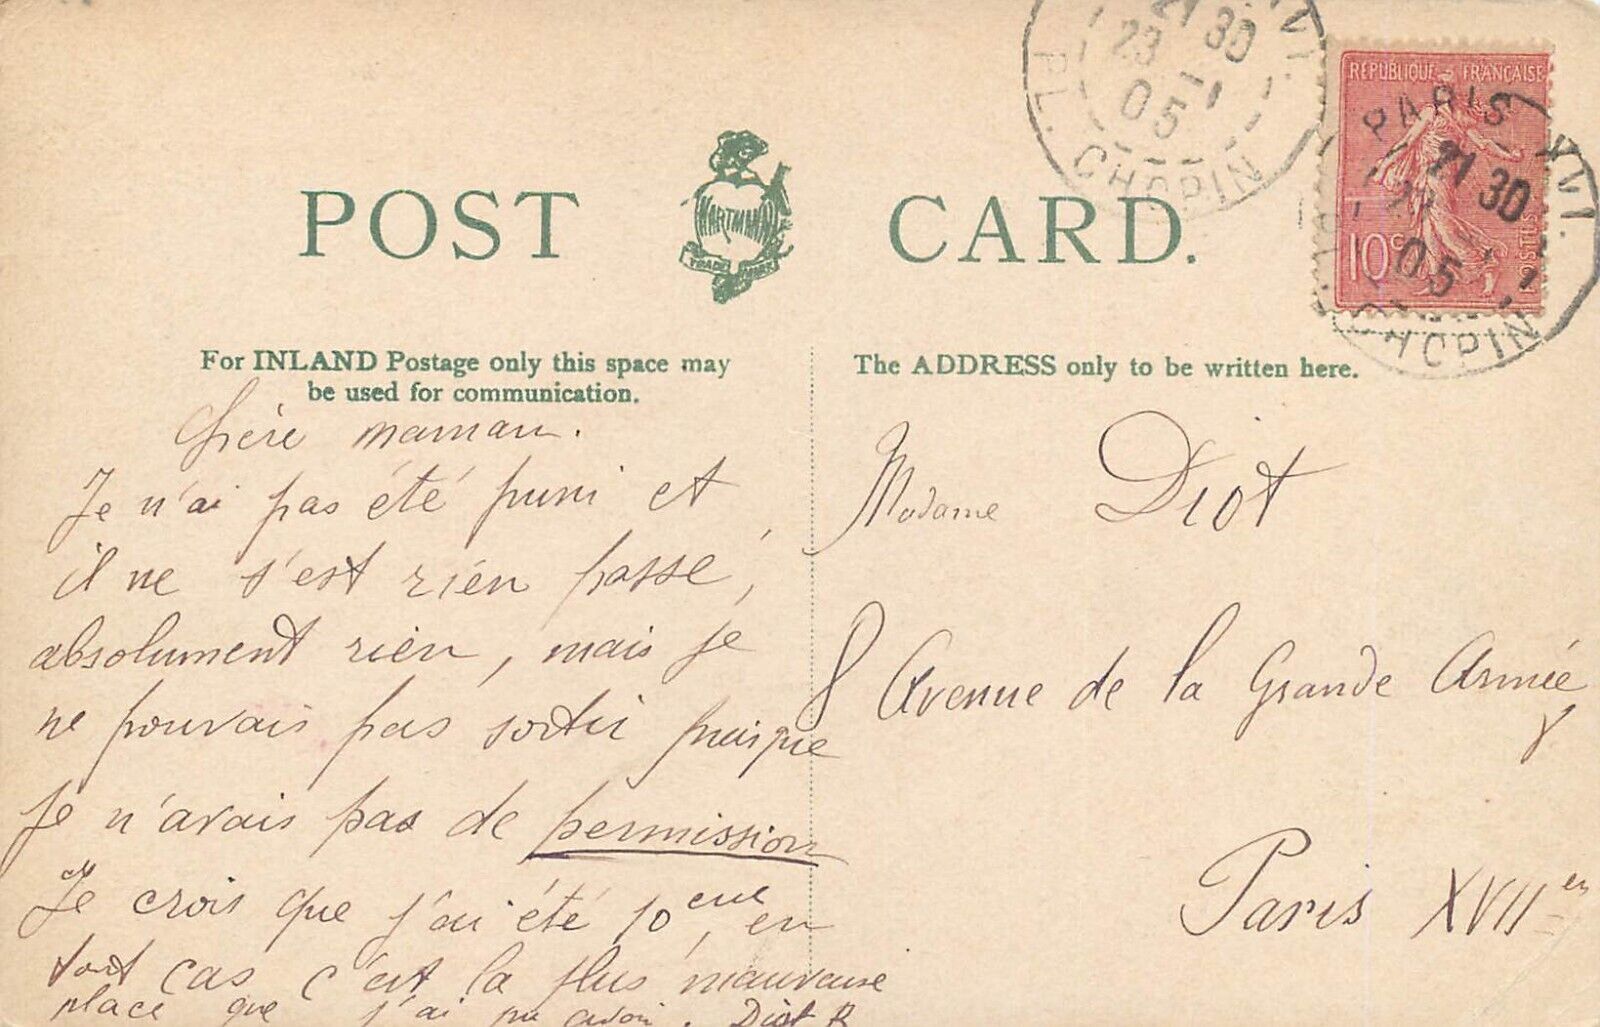 POST CARD.
HARTMANN
TRADE MARK
21 30
XVI.
23 - 1
05
PL. CHOPIN
REPUBLIQUE FRANÇAISE
10c
POSTES
PARIS XVI.
21 30
05
CHOPIN
For INLAND Postage only this space may
be used for communication.
The ADDRESS only to be written here.
Chère maman.
Je n'ai pas été puni et
il ne s'est rien passé,
absolument rien, mais je
ne pouvais pas sortir puisque
je n'avais pas de permission
Je crois que j'ai été 10eme, en
tout cas c'est la plus mauvaise
place que j'ai pu avoir. Diot R
Madame Diot
8 Avenue de la Grande Armée
Paris XVII